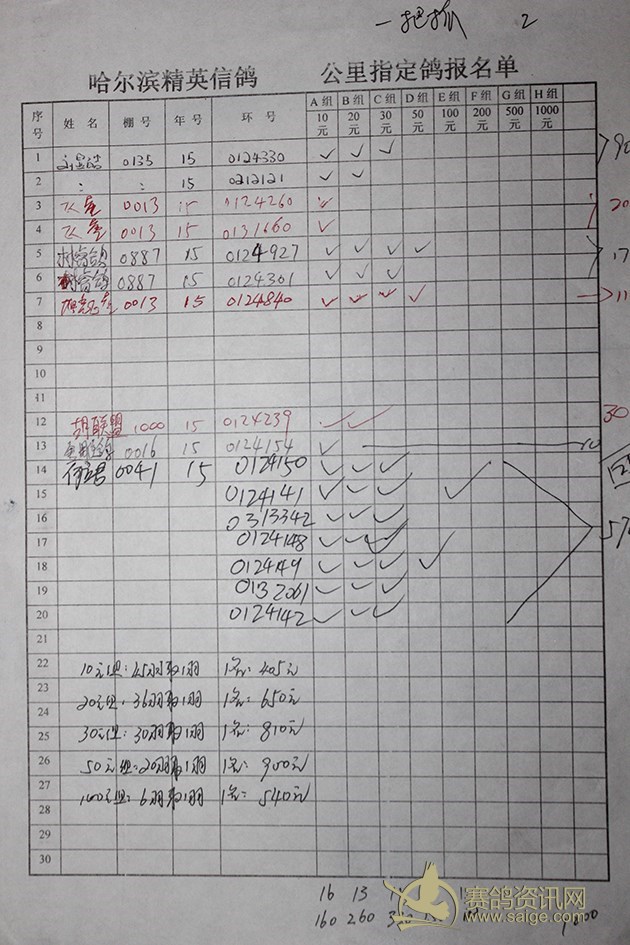 一把抓 2
哈尔滨精英信鸽 公里指定鸽报名单
序号 姓名 棚号 年号 环号 A组 10元 B组 20元 C组 30元 D组 50元 E组 100元 F组 200元 G组 500元 H组 1000元
1 0135 15 0124330 ✓ ✓ ✓ 90
2 : : 15 0212121 ✓ ✓
3 0013 15 0124260 ✓ 20
4 0013 15 0131660 ✓
5 0887 15 0124927 ✓ ✓ ✓ ✓ 17
6 0887 15 0124301 ✓ ✓ ✓
7 0013 15 0124840 ✓ ✓ ✓ ✓ 11
8
9
10
11
12 胡联盟 1000 15 0124239 ✓ ✓ 30
13 0016 15 0124154 ✓ 10
14 0041 15 0124150 ✓ ✓ ✓
15 0124141 ✓ ✓ ✓ ✓
16 0313342 ✓ ✓ ✓
17 0124148 ✓ ✓ ✓ 57
18 0124149 ✓ ✓ ✓ ✓
19 0132061 ✓ ✓ ✓
20 0124142 ✓ ✓ ✓
21
22 10元组:45羽取1羽 1名:405元
23 20元组:36羽取1羽 1名:650元
24
25 30元组:30羽取1羽 1名:810元
26 50元组:20羽取1羽 1名:900元
27 100元组:6羽取1羽 1名:540元
28
29
30
16 13
160 260
赛鸽资讯网
www.saige.com